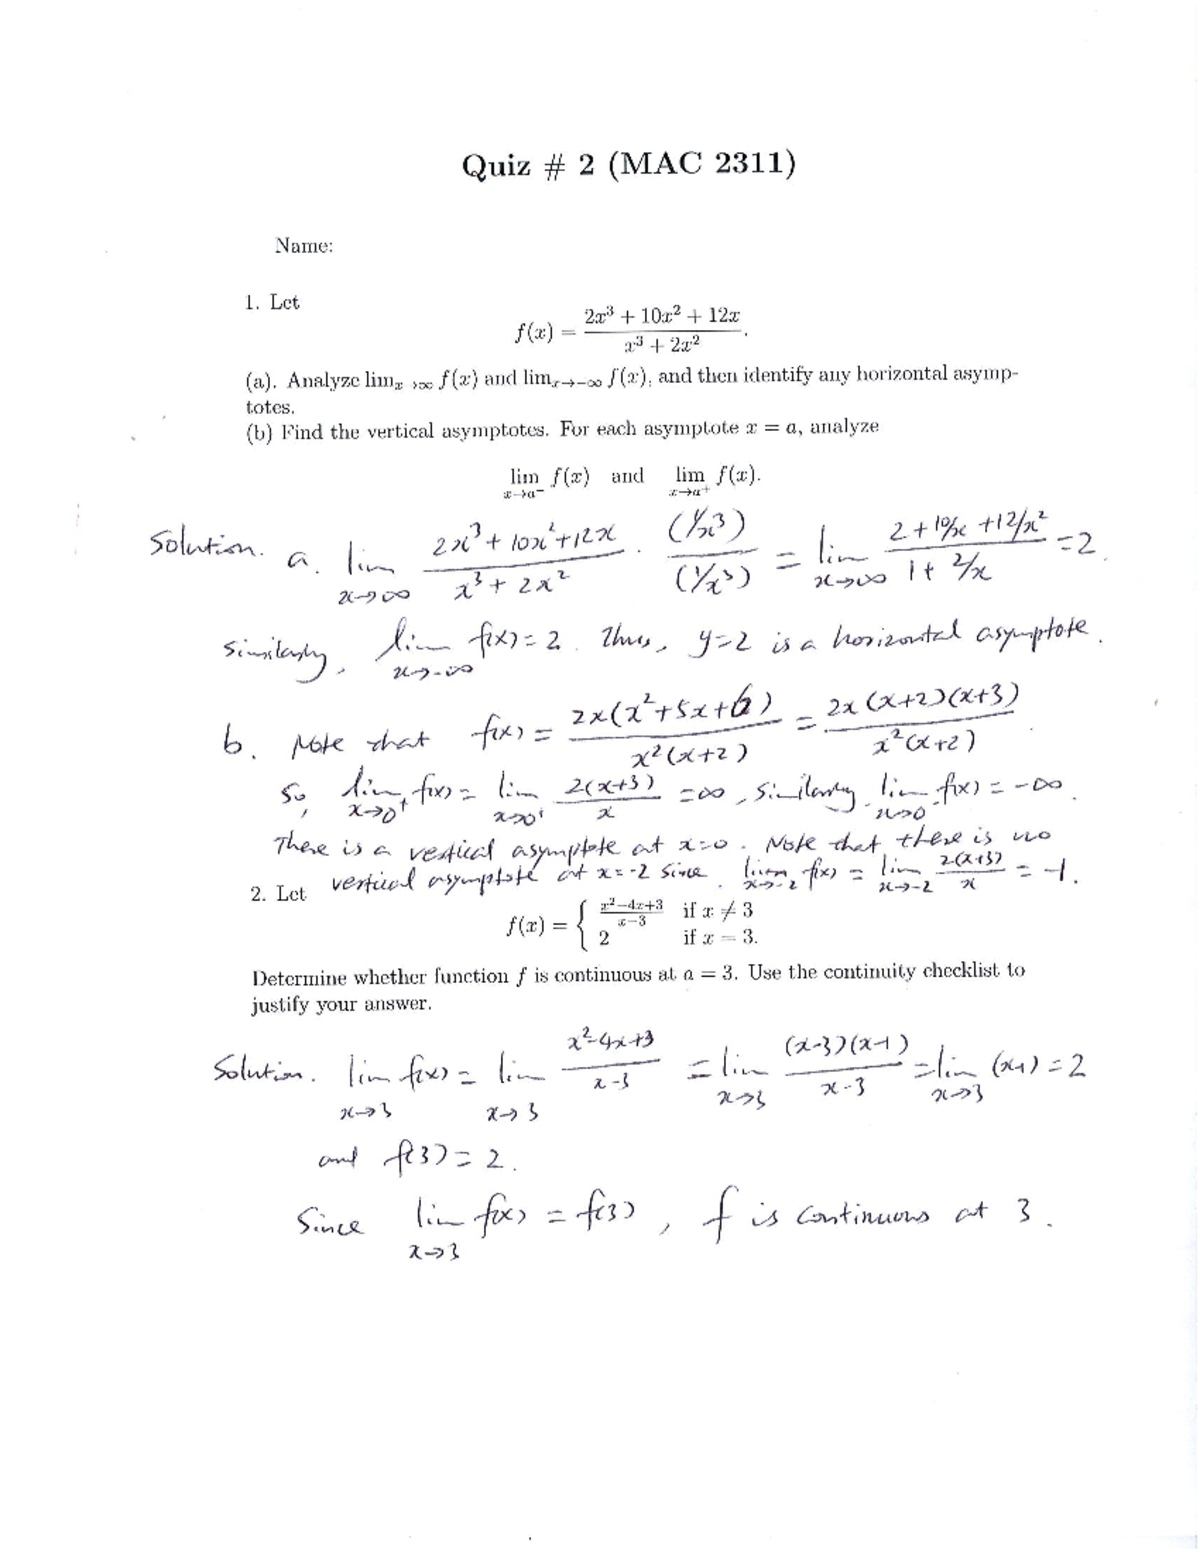 Quiz # 2 (MAC 2311)
Name:
1. Let
f(x) = (2x³ + 10x² + 12x)/(x³ + 2x²).
(a). Analyze lim_{x→∞} f(x) and lim_{x→−∞} f(x), and then identify any horizontal asymp-
totes.
(b) Find the vertical asymptotes. For each asymptote x = a, analyze
lim_{x→a⁻} f(x) and lim_{x→a⁺} f(x).
Solution. a. lim_{x→∞} (2x³ + 10x² + 12x)/(x³ + 2x²) · (1/x³)/(1/x³) = lim_{x→∞} (2 + 10/x + 12/x²)/(1 + 2/x) = 2.
Similarly, lim_{x→-∞} f(x) = 2. Thus, y=2 is a horizontal asymptote.
b. Note that f(x) = 2x(x²+5x+6)/(x²(x+2)) = 2x(x+2)(x+3)/(x²(x+2)).
So, lim_{x→0⁺} f(x) = lim_{x→0⁺} 2(x+3)/x = ∞, Similarly lim_{x→0⁻} f(x) = -∞.
There is a vertical asymptote at x=0. Note that there is no
vertical asymptote at x=-2 since lim_{x→-2} f(x) = lim_{x→-2} 2(x+3)/x = -1.
2. Let
f(x) = { (x²−4x+3)/(x−3) if x ≠ 3
2 if x = 3.
Determine whether function f is continuous at a = 3. Use the continuity checklist to
justify your answer.
Solution. lim_{x→3} f(x) = lim_{x→3} (x²-4x+3)/(x-3) = lim_{x→3} (x-3)(x-1)/(x-3) = lim_{x→3} (x-1) = 2
and f(3) = 2.
Since lim_{x→3} f(x) = f(3), f is continuous at 3.